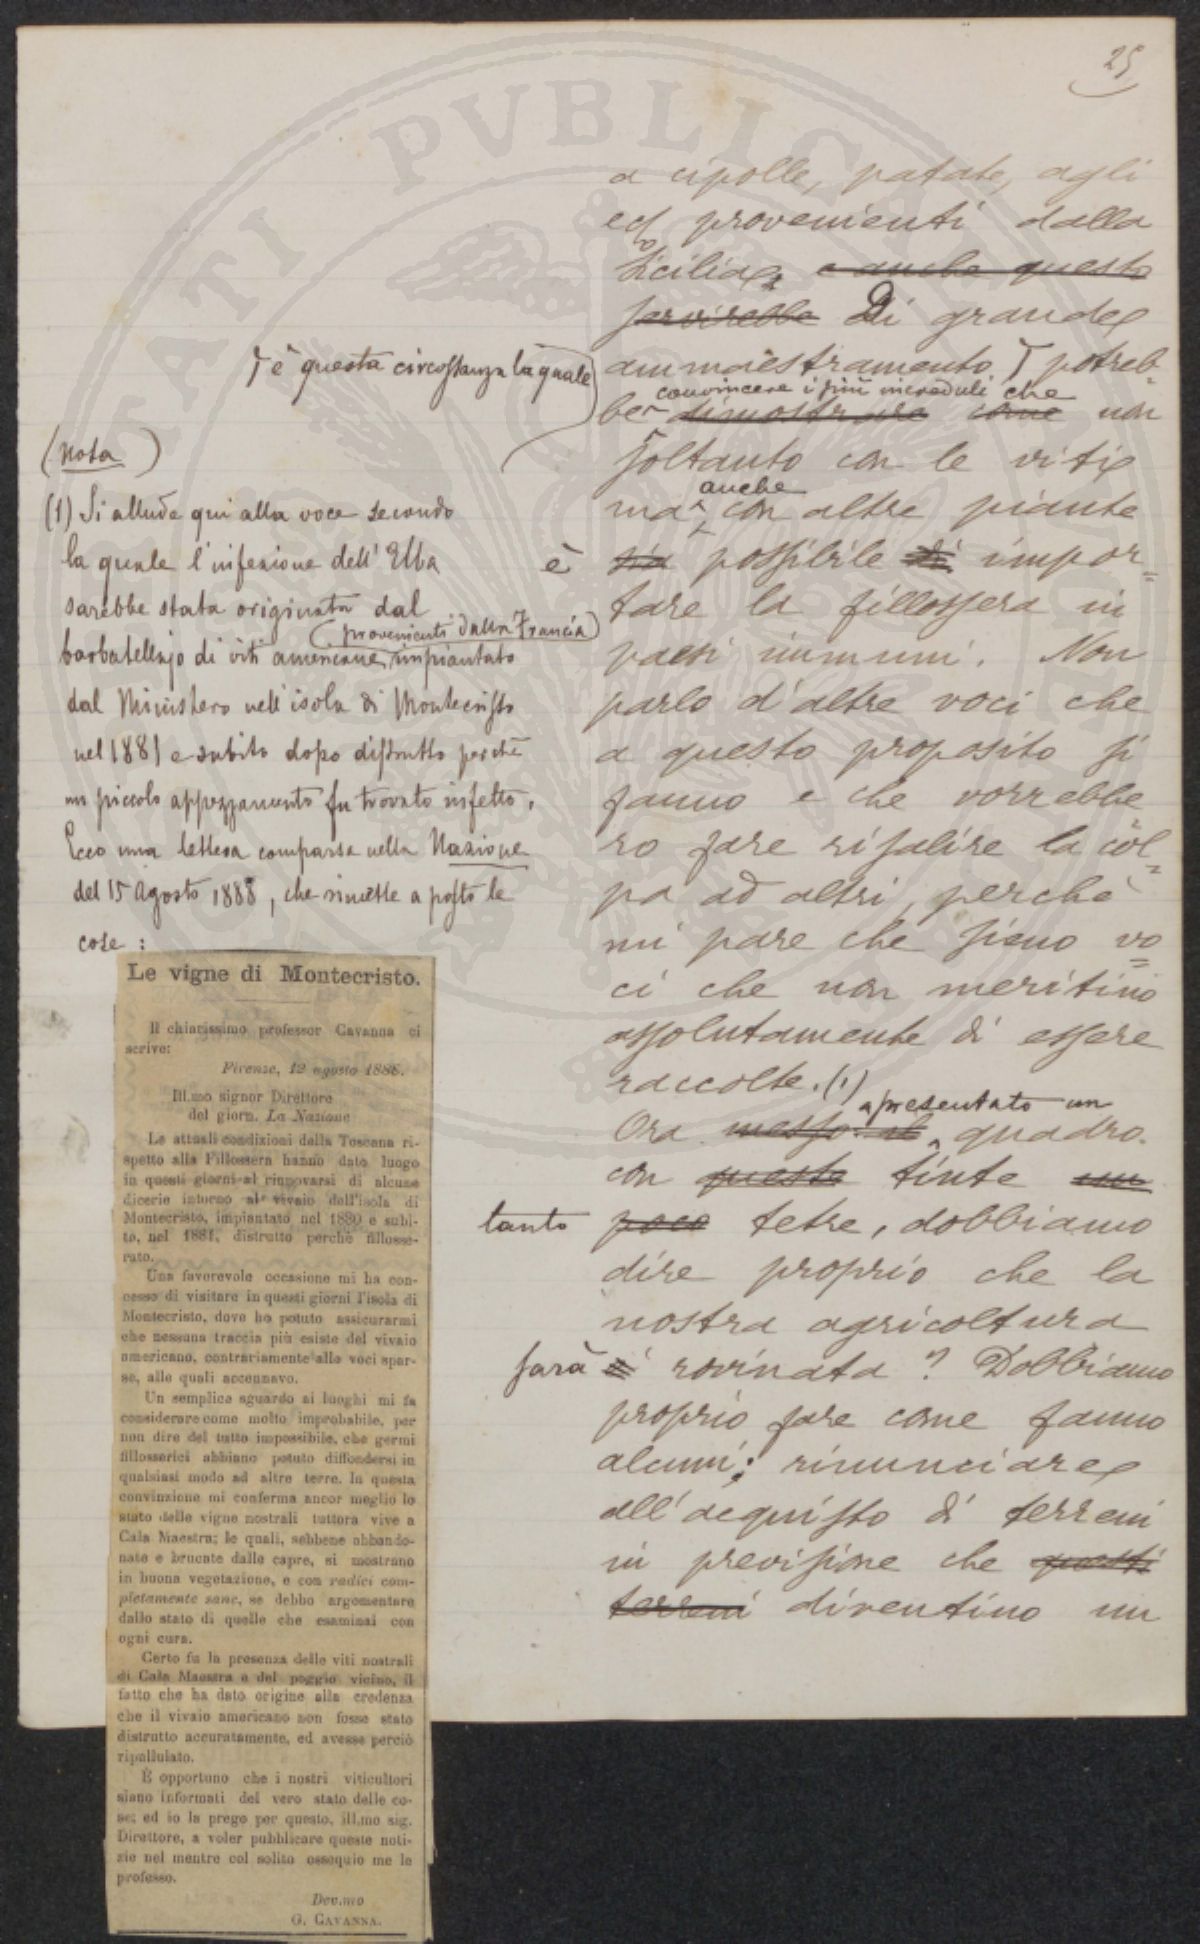 25
a cipolle, patate, agli
ed provenienti dalla
Sicilia, e anche questo
servirebbe Di grande
ammaestramento ꟶ potreb-
convincere i più increduli che
be dimostrare come non
soltanto con le viti
anche
ma con altre piante
è sia possibile di impor=
tare la fillossera in
paesi immuni. Non
parlo d'altre voci che
a questo proposito si
fanno e che vorrebbe=
ro fare risalire la col=
pa ad altri, perchè
mi pare che sieno vo=
ci che non meritino
assolutamente di essere
raccolte. (1)
apresentato un
Ora messo il quadro
con queste tinte un
tanto poco tetre, dobbiamo
dire proprio che la
nostra agricoltura
sarà è rovinata? Dobbiamo
proprio fare come fanno
alcuni: rinunciare
all'acquisto di terreni
in previsione che questi
terreni diventino un
è questa circostanza la quale
(Nota)
(1) Si allude qui alla voce secondo
la quale l'infezione dell'Elba
sarebbe stata originata dal
(provenienti dalla Francia)
barbatellajo di viti americane, impiantato
dal Ministero nell'isola di Montecristo
nel 1881 e subito dopo distrutto perchè
un piccolo appezzamento fu trovato infetto.
Ecco una lettera comparsa nella Nazione
del 15 Agosto 1888, che rimette a posto le
cose:
Le vigne di Montecristo.
Il chiarissimo professor Cavanna ci
scrive:
Firenze, 12 agosto 1888.
Ill.mo signor Direttore
del giorn. La Nazione
Le attuali condizioni della Toscana ri-
spetto alla Fillossera hanno dato luogo
in questi giorni al rinnovarsi di alcune
dicerie intorno al vivaio dell'isola di
Montecristo, impiantato nel 1880 e subi-
to, nel 1881, distrutto perchè fillosse-
rato.
Una favorevole occasione mi ha con-
cesso di visitare in questi giorni l'isola di
Montecristo, dove ho potuto assicurarmi
che nessuna traccia più esiste del vivaio
americano, contrariamente alle voci spar-
se, alle quali accennavo.
Un semplice sguardo ai luoghi mi fa
considerare come molto improbabile, per
non dire del tutto impossibile, che germi
fillosserici abbiano potuto diffondersi in
qualsiasi modo ad altre terre. In questa
convinzione mi conferma ancor meglio lo
stato delle vigne nostrali tuttora vive a
Cala Maestra; le quali, sebbene abbando-
nate e brucate dalle capre, si mostrano
in buona vegetazione, e con radici com-
pletamente sane, se debbo argomentare
dallo stato di quelle che esaminai con
ogni cura.
Certo fu la presenza delle viti nostrali
di Cala Maestra e del poggio vicino, il
fatto che ha dato origine alla credenza
che il vivaio americano non fosse stato
distrutto accuratamente, ed avesse perciò
ripullulato.
È opportuno che i nostri viticultori
siano informati del vero stato delle co-
se; ed io la prego per questo, ill.mo sig.
Direttore, a voler pubblicare queste noti-
zie nel mentre col solito ossequio me le
professo.
Dev.mo
G. CAVANNA.